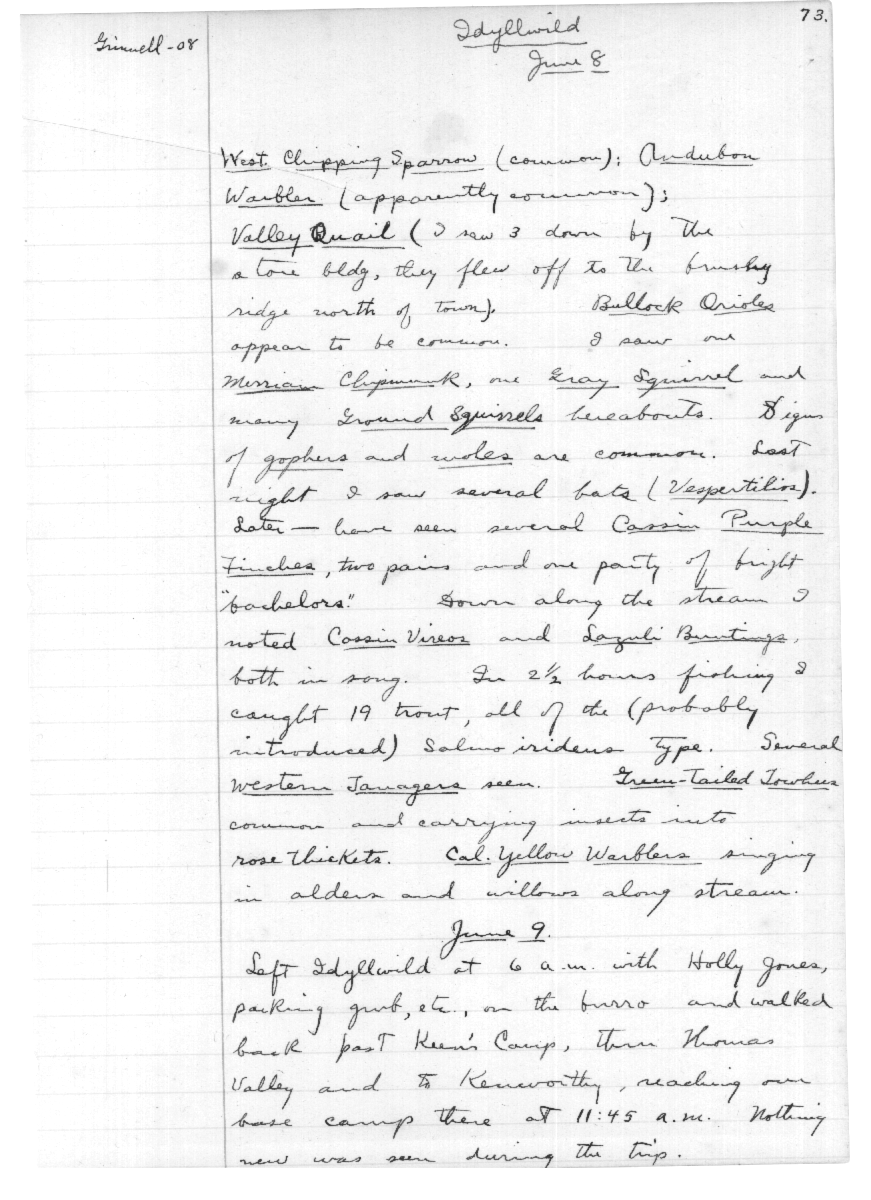 73.
Grinnell-08
Idyllwild
June 8
West. Chipping Sparrow (common); Audubon
Warbler (apparently common);
Valley Quail (I saw 3 down by the
store bldg, they flew off to the brushy
ridge north of town). Bullock Orioles
appear to be common. I saw one
Merriam Chipmunk, one Gray Squirrel and
many Ground Squirrels hereabouts. Signs
of gophers and moles are common. Last
night I saw several bats (Vespertilios).
Later — have seen several Cassin Purple
Finches, two pairs and one party of bright
"bachelors." Down along the stream I
noted Cassin Vireos and Lazuli Buntings,
both in song. In 2½ hours fishing I
caught 19 trout, all of the (probably
introduced) Salmo irideus type. Several
Western Tanagers seen. Green-tailed Towhees
common and carrying insects into
rose thickets. Cal. Yellow Warblers singing
in alders and willows along stream.
June 9.
Left Idyllwild at 6 a.m. with Holly Jones,
packing grub, etc., on the burro and walked
back past Keen's Camp, thru Thomas
Valley and to Kenworthy, reaching our
base camp there at 11:45 a.m. Nothing
new was seen during the trip.